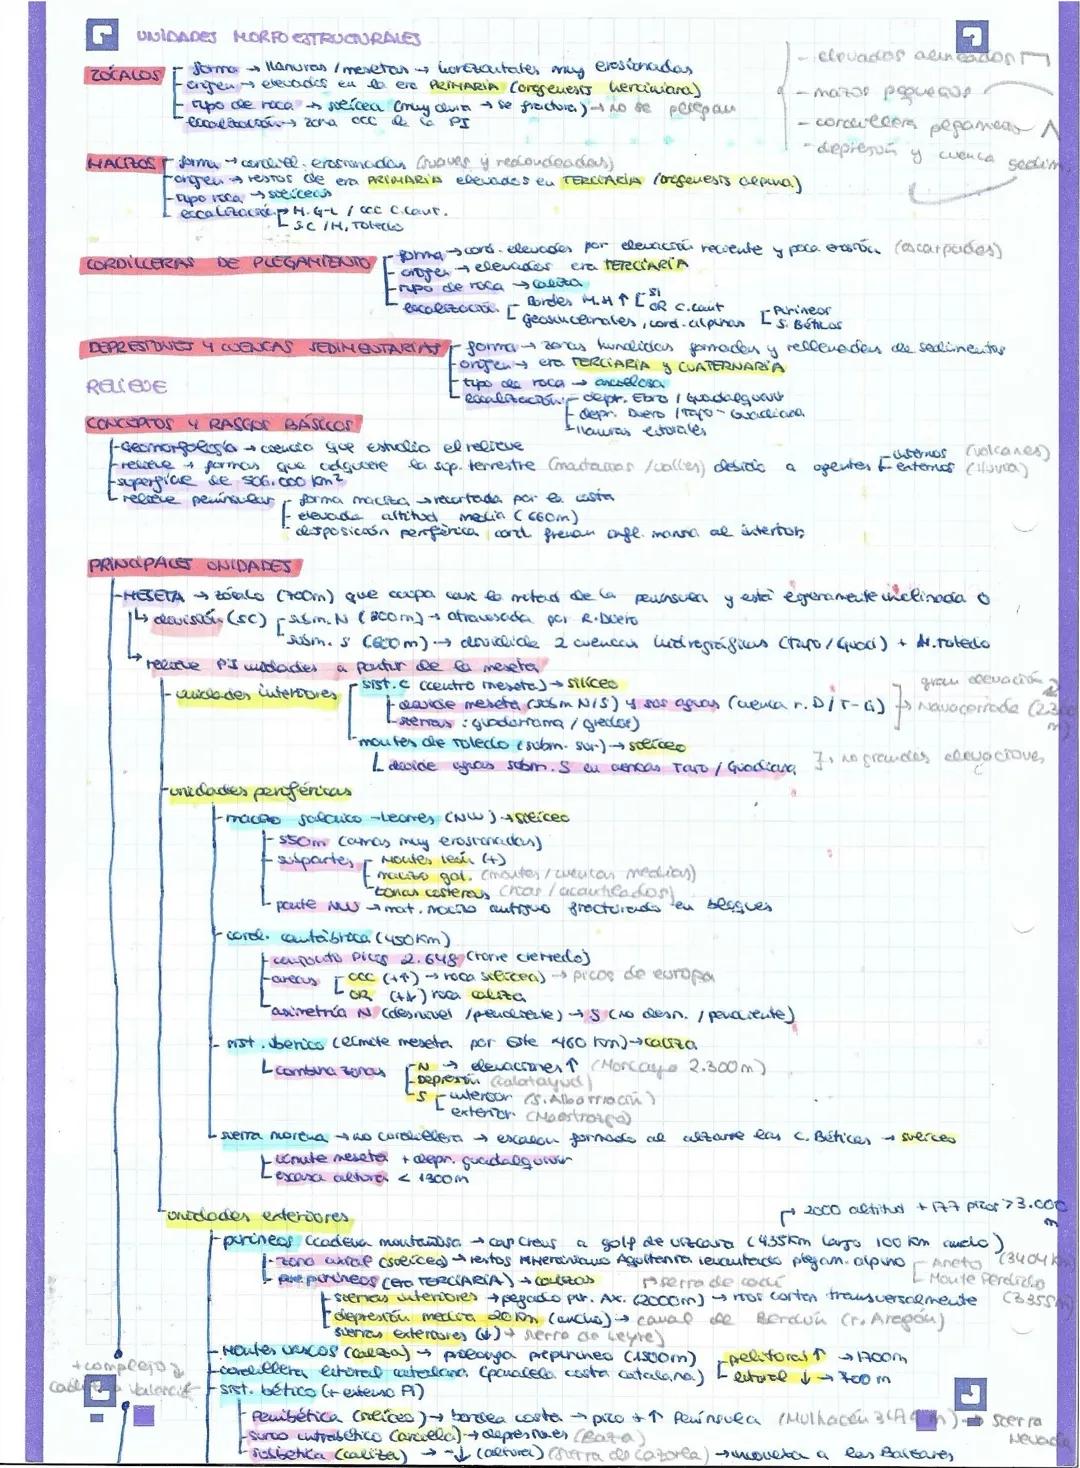 UNIDADES MORFOESTRUCTURALES
ZÓCALOS
forma → llanuras / mesetas → horizontales muy erosionadas
- elevados alineados
origen → elevados en la era PRIMARIA (orogenesis herciniana)
- tipo de roca → silícea (muy dura → se fractura) → no se pliegan
- localización → zona occ de la PI
- cordillera
- depresión y cuenca sedim.
MACIZOS
forma → cordill. erosionadas (suaves y redondeadas)
origen → restos de era PRIMARIA elevados en TERCIARIA (orogenesis alpina)
- tipo roca → silíceas
- localización → M. G-L / occ C. Cant.
S.C / M. Toledo
CORDILLERAS DE PLEGAMIENTO
forma → cord. elevadas por elevación reciente y poca erosión (escarpadas)
- origen → elevadas era TERCIARIA
- tipo de roca → caliza
- localización
Bordes M.H ↑
SI
OR C. Cant
geosinclinales, cord. alpinas
Pirineos
S. Béticos
DEPRESIONES Y CUENCAS SEDIMENTARIAS
forma → zonas hundidas formadas y rellenadas de sedimentos
- origen → era TERCIARIA y CUATERNARIA
- tipo de roca → arcillosa
- localización
depr. Ebro / Guadalquivir
- depr. Duero / Tajo - Guadiana
- llanuras litorales
RELIEVE
CONCEPTOS Y RASGOS BÁSICOS
- Geomorfología → ciencia que estudia el relieve
- relieve → formas que adquiere la sup. terrestre (montañas / valles) debido a agentes
internos (volcanes)
externos (lluvia)
- superficie de 506.000 km²
- relieve peninsular
forma maciza → recortada por la costa
elevada altitud media (660m)
disposición periférica cord. frenan infl. marina al interior
PRINCIPALES UNIDADES
- MESETA → zócalo (700m) que ocupa casi la mitad de la península y está ligeramente inclinada
↳ división (SC)
subm. N (800m) → atravesada por R. Duero
subm. S (600m) → divide 2 cuencas hidrográficas (Tajo / Guad) + M. Toledo
→ relieve PI unidades a partir de la meseta
- unidades interiores
sist. C (centro meseta) → silíceo
gran elevación
- divide meseta (subm N/S) y sus aguas (cuenca r. D / T-G)
→ Navacerrada
- sierras: guadarrama / gredos)
- montes de Toledo (subm. sur) → silíceo
divide aguas subm. S en cuencas Tajo / Guadiana
→ no grandes elevaciones
- unidades periféricas
- macizo galaico-leonés (NW) → silíceo
- 550m (cimas muy erosionadas)
- subpartes
Montes León (+)
macizo gal. (montes / cuencas medias)
zonas costeras (rías / acantilados)
- parte NW → mat. macizo antiguo fracturado en bloques
- cord. cantábrica (450 km)
- conjunto picos 2.648 (torre cerredo)
- áreas
OCC (+↑) → roca silícea) → picos de europa
OR (+↓) roca caliza
- asimetría N (desnivel / pendiente) → S (no desn. / pendiente)
- sist. ibérico (límite meseta por Este 460 km) → caliza
combina zonas
N → elevaciones ↑ (Moncayo 2.300m)
- Depresión (calatayud)
- S
interior (S. Albarracín)
exterior (Maestrazgo)
- sierra morena → no cordillera → escalón formado al alzarse las C. Béticas → silíceo
límite meseta + depr. guadalquivir
- escasa altura < 1300m
- unidades exteriores
→ 2000 altitud + 177 picos > 3.000 m
- pirineos (cadena montañosa → cap creus a golfo de vizcaya (435km largo 100 km ancho)
- zona axial (silícea) → restos M. Herciniano Aquitania levantado plegam. alpino
Aneto
- prepirineos (era TERCIARIA) → calizos
Monte Perdido
- sierras interiores → pegado pir. Ax. (2000m) → ríos cortan transversalmente
- depresión media 20 km (ancho) → canal de Berdún (r. Aragón)
sierras exteriores (↓) → sierra de Leyre)
- Montes Vascos (caliza) → prolonga prepirineo (1500m)
prelitoral ↑ → 1700m
- cordillera litoral catalana (paralela costa catalana)
litoral ↓ → 700 m
- sist. bético (+ extenso PI)
- Penibética (silícea) → bordea costa → pico + ↑ Península (Mulhacén) → Sierra Nevada
- surco intrabético (arcilla) → depresiones (Baza)
- subbética (caliza) → -↓ (altura) (sierra de Cazorla) → a las Baleares